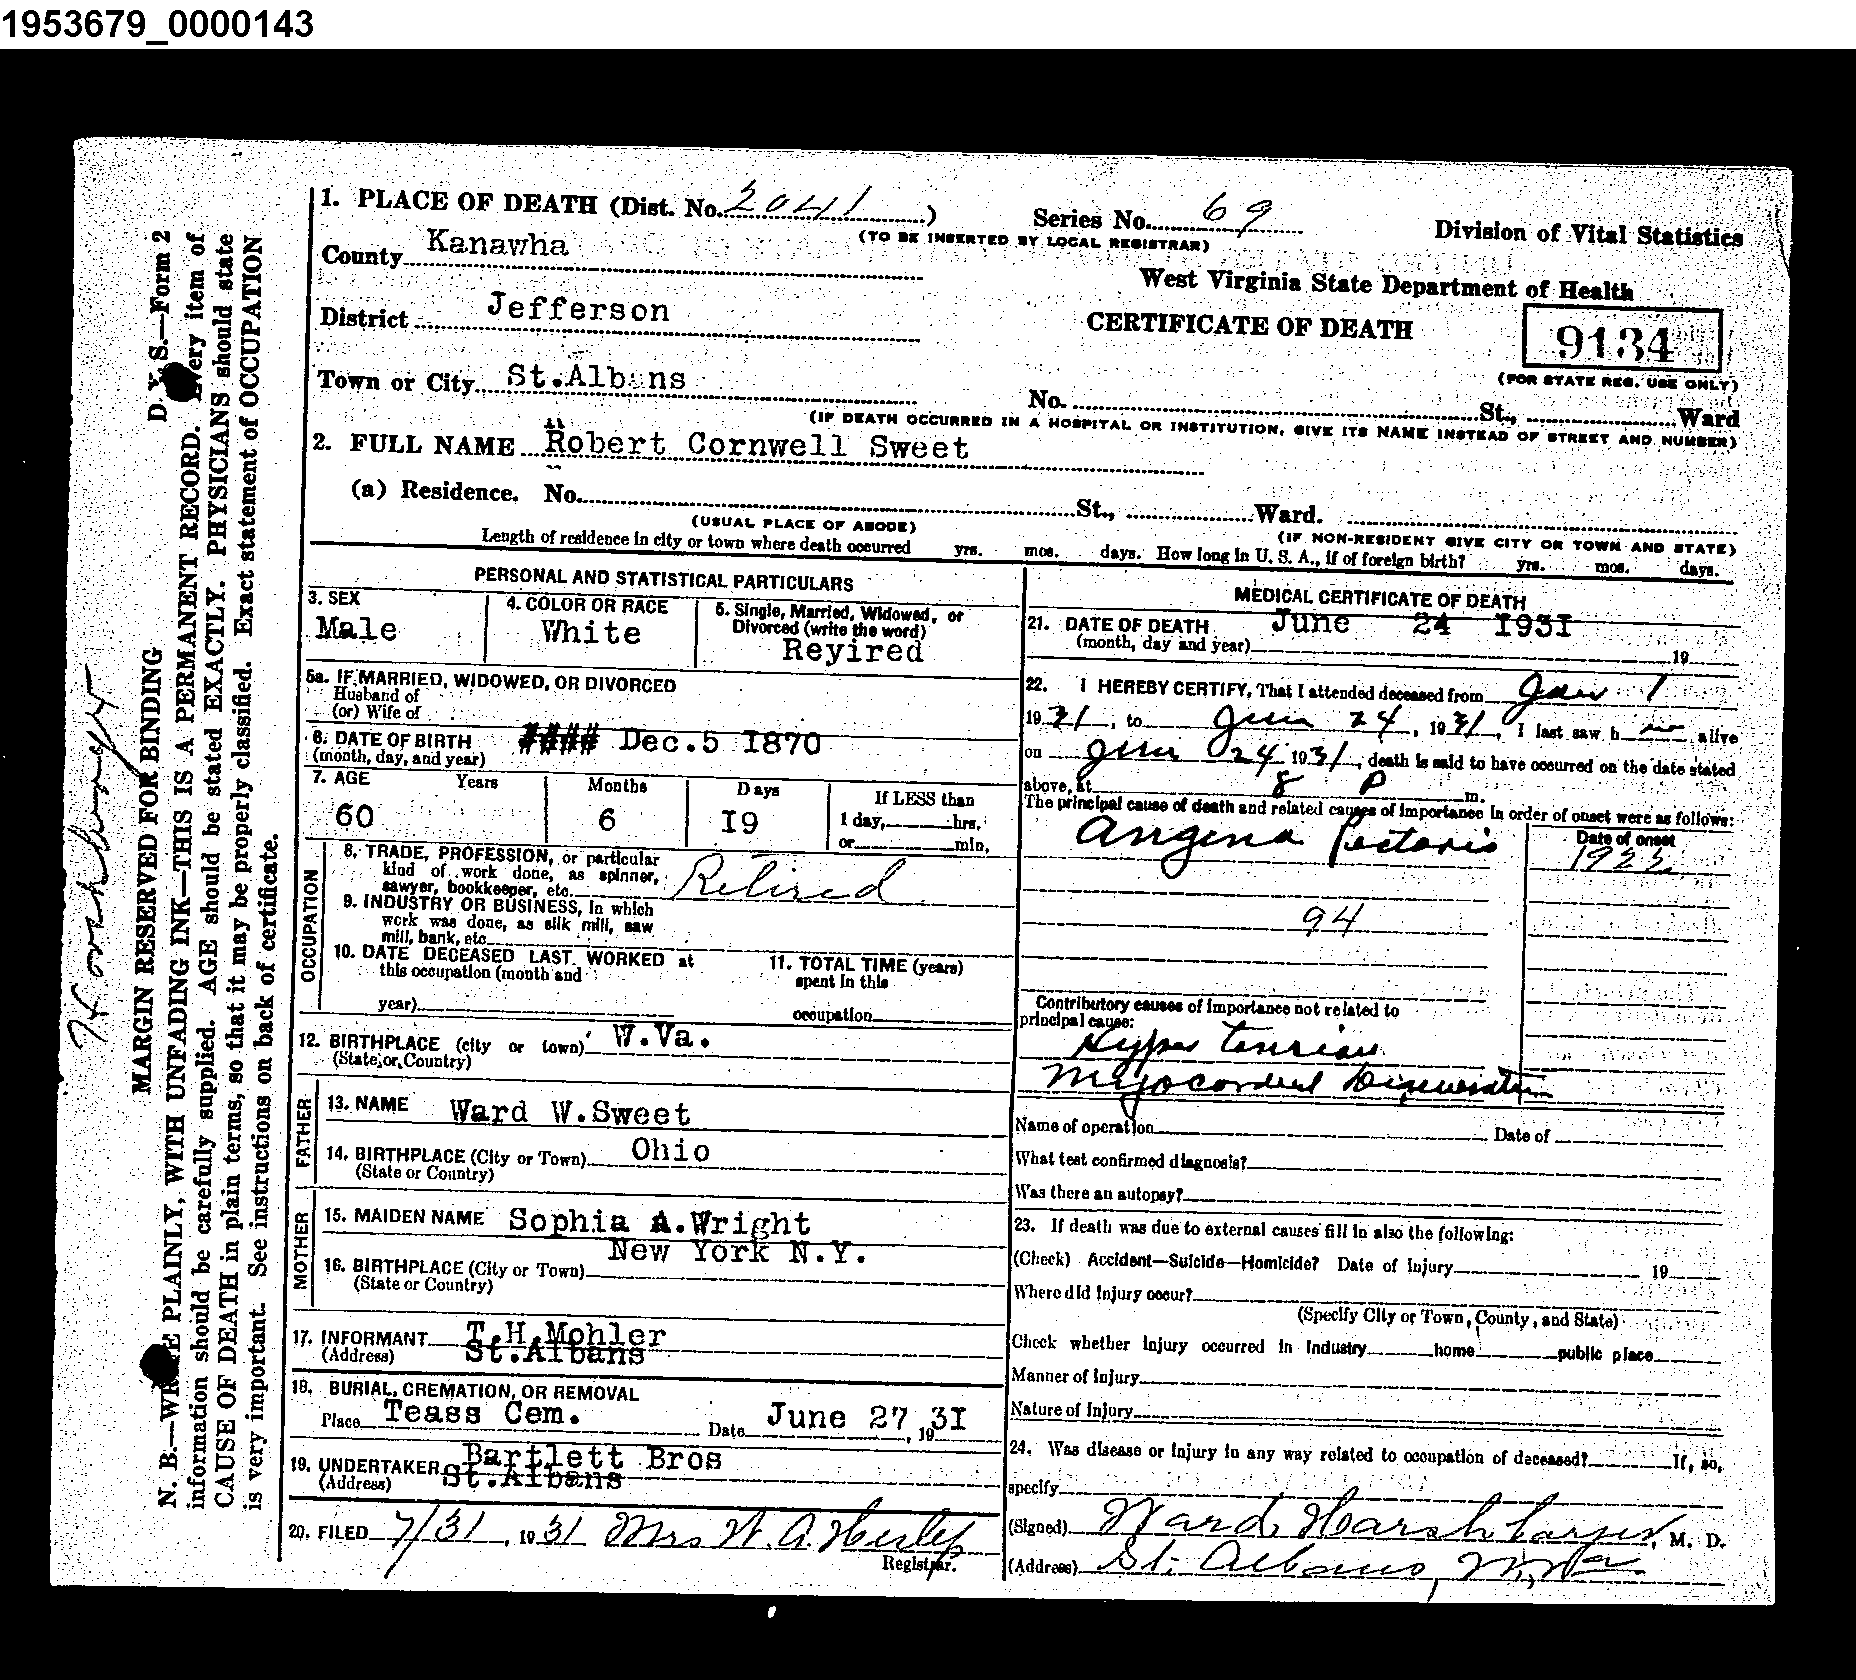 1953679_0000143
1. PLACE OF DEATH (Dist. No. 2041)
Series No. 69
Division of Vital Statistics
(TO BE INSERTED BY LOCAL REGISTRAR)
County Kanawha
West Virginia State Department of Health
District Jefferson
CERTIFICATE OF DEATH
9134
(FOR STATE REG. USE ONLY)
Town or City St.Albans
No. St., Ward
(IF DEATH OCCURRED IN A HOSPITAL OR INSTITUTION, GIVE ITS NAME INSTEAD OF STREET AND NUMBER)
2. FULL NAME Robert Cornwell Sweet
(a) Residence. No. St., Ward.
(USUAL PLACE OF ABODE)
(IF NON-RESIDENT GIVE CITY OR TOWN AND STATE)
Length of residence in city or town where death occurred yrs. mos. days. How long in U. S. A., if of foreign birth? yrs. mos. days.
PERSONAL AND STATISTICAL PARTICULARS
3. SEX
Male
4. COLOR OR RACE
White
5. Single, Married, Widowed, or
Divorced (write the word)
Reyired
5a. IF MARRIED, WIDOWED, OR DIVORCED
Husband of
(or) Wife of
6. DATE OF BIRTH #### Dec.5 I870
(month, day, and year)
7. AGE Years Months Days
60 6 I9
If LESS than
1 day, hrs.
or min.
OCCUPATION
8. TRADE, PROFESSION, or particular
kind of work done, as spinner,
sawyer, bookkeeper, etc. Retired
9. INDUSTRY OR BUSINESS, in which
work was done, as silk mill, saw
mill, bank, etc.
10. DATE DECEASED LAST WORKED at
this occupation (month and
year)
11. TOTAL TIME (years)
spent in this
occupation
12. BIRTHPLACE (city or town) W.Va.
(State or Country)
FATHER
13. NAME Ward W.Sweet
14. BIRTHPLACE (City or Town) Ohio
(State or Country)
MOTHER
15. MAIDEN NAME Sophia A.Wright
New York N.Y.
16. BIRTHPLACE (City or Town)
(State or Country)
17. INFORMANT T.H.Mohler
(Address) St.Albans
18. BURIAL, CREMATION, OR REMOVAL
Place Teass Cem. Date June 27, 1931
19. UNDERTAKER Bartlett Bros
(Address) St.Albans
20. FILED 7/31, 1931 Mrs W. A.
Registrar.
MEDICAL CERTIFICATE OF DEATH
21. DATE OF DEATH June 24 I93I
(month, day and year) 19
22. I HEREBY CERTIFY, That I attended deceased from Jan 1
1931, to June 24, 1931, I last saw h alive
on June 24 1931, death is said to have occurred on the date stated
above, at 8 P m.
The principal cause of death and related causes of importance in order of onset were as follows:
Date of onset
Angina Pectoris
94
Contributory causes of importance not related to
principal cause:
Hyper tension
Myocardial Degeneration
Name of operation Date of
What test confirmed diagnosis?
Was there an autopsy?
23. If death was due to external causes fill in also the following:
(Check) Accident—Suicide—Homicide? Date of Injury 19
Where did Injury occur?
(Specify City or Town, County, and State)
Check whether Injury occurred in Industry home public place
Manner of Injury
Nature of Injury
24. Was disease or injury in any way related to occupation of deceased? If, so,
specify
(Signed) Ward Harshbarger, M. D.
(Address) St. Albans, W, Va
D. V. S.—Form 2
MARGIN RESERVED FOR BINDING
N. B.—WRITE PLAINLY, WITH UNFADING INK—THIS IS A PERMANENT RECORD. Every item of
information should be carefully supplied. AGE should be stated EXACTLY. PHYSICIANS should state
CAUSE OF DEATH in plain terms, so that it may be properly classified. Exact statement of OCCUPATION
is very important. See instructions on back of certificate.